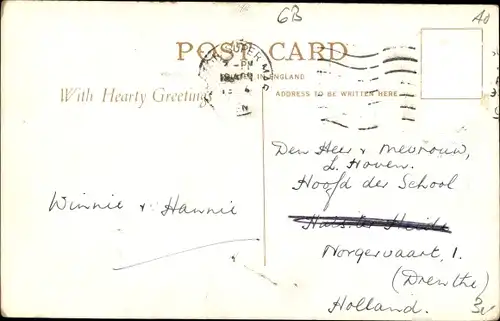 6B
POST CARD
With Hearty Greetings
IN ENGLAND
ADDRESS TO BE WRITTEN HERE
Den Heer & Mevrouw,
L. Hoven.
Hoofd der School
Huis ter Heide
Norgervaart, 1.
(Drenthe)
Holland.
Winnie & Hannie